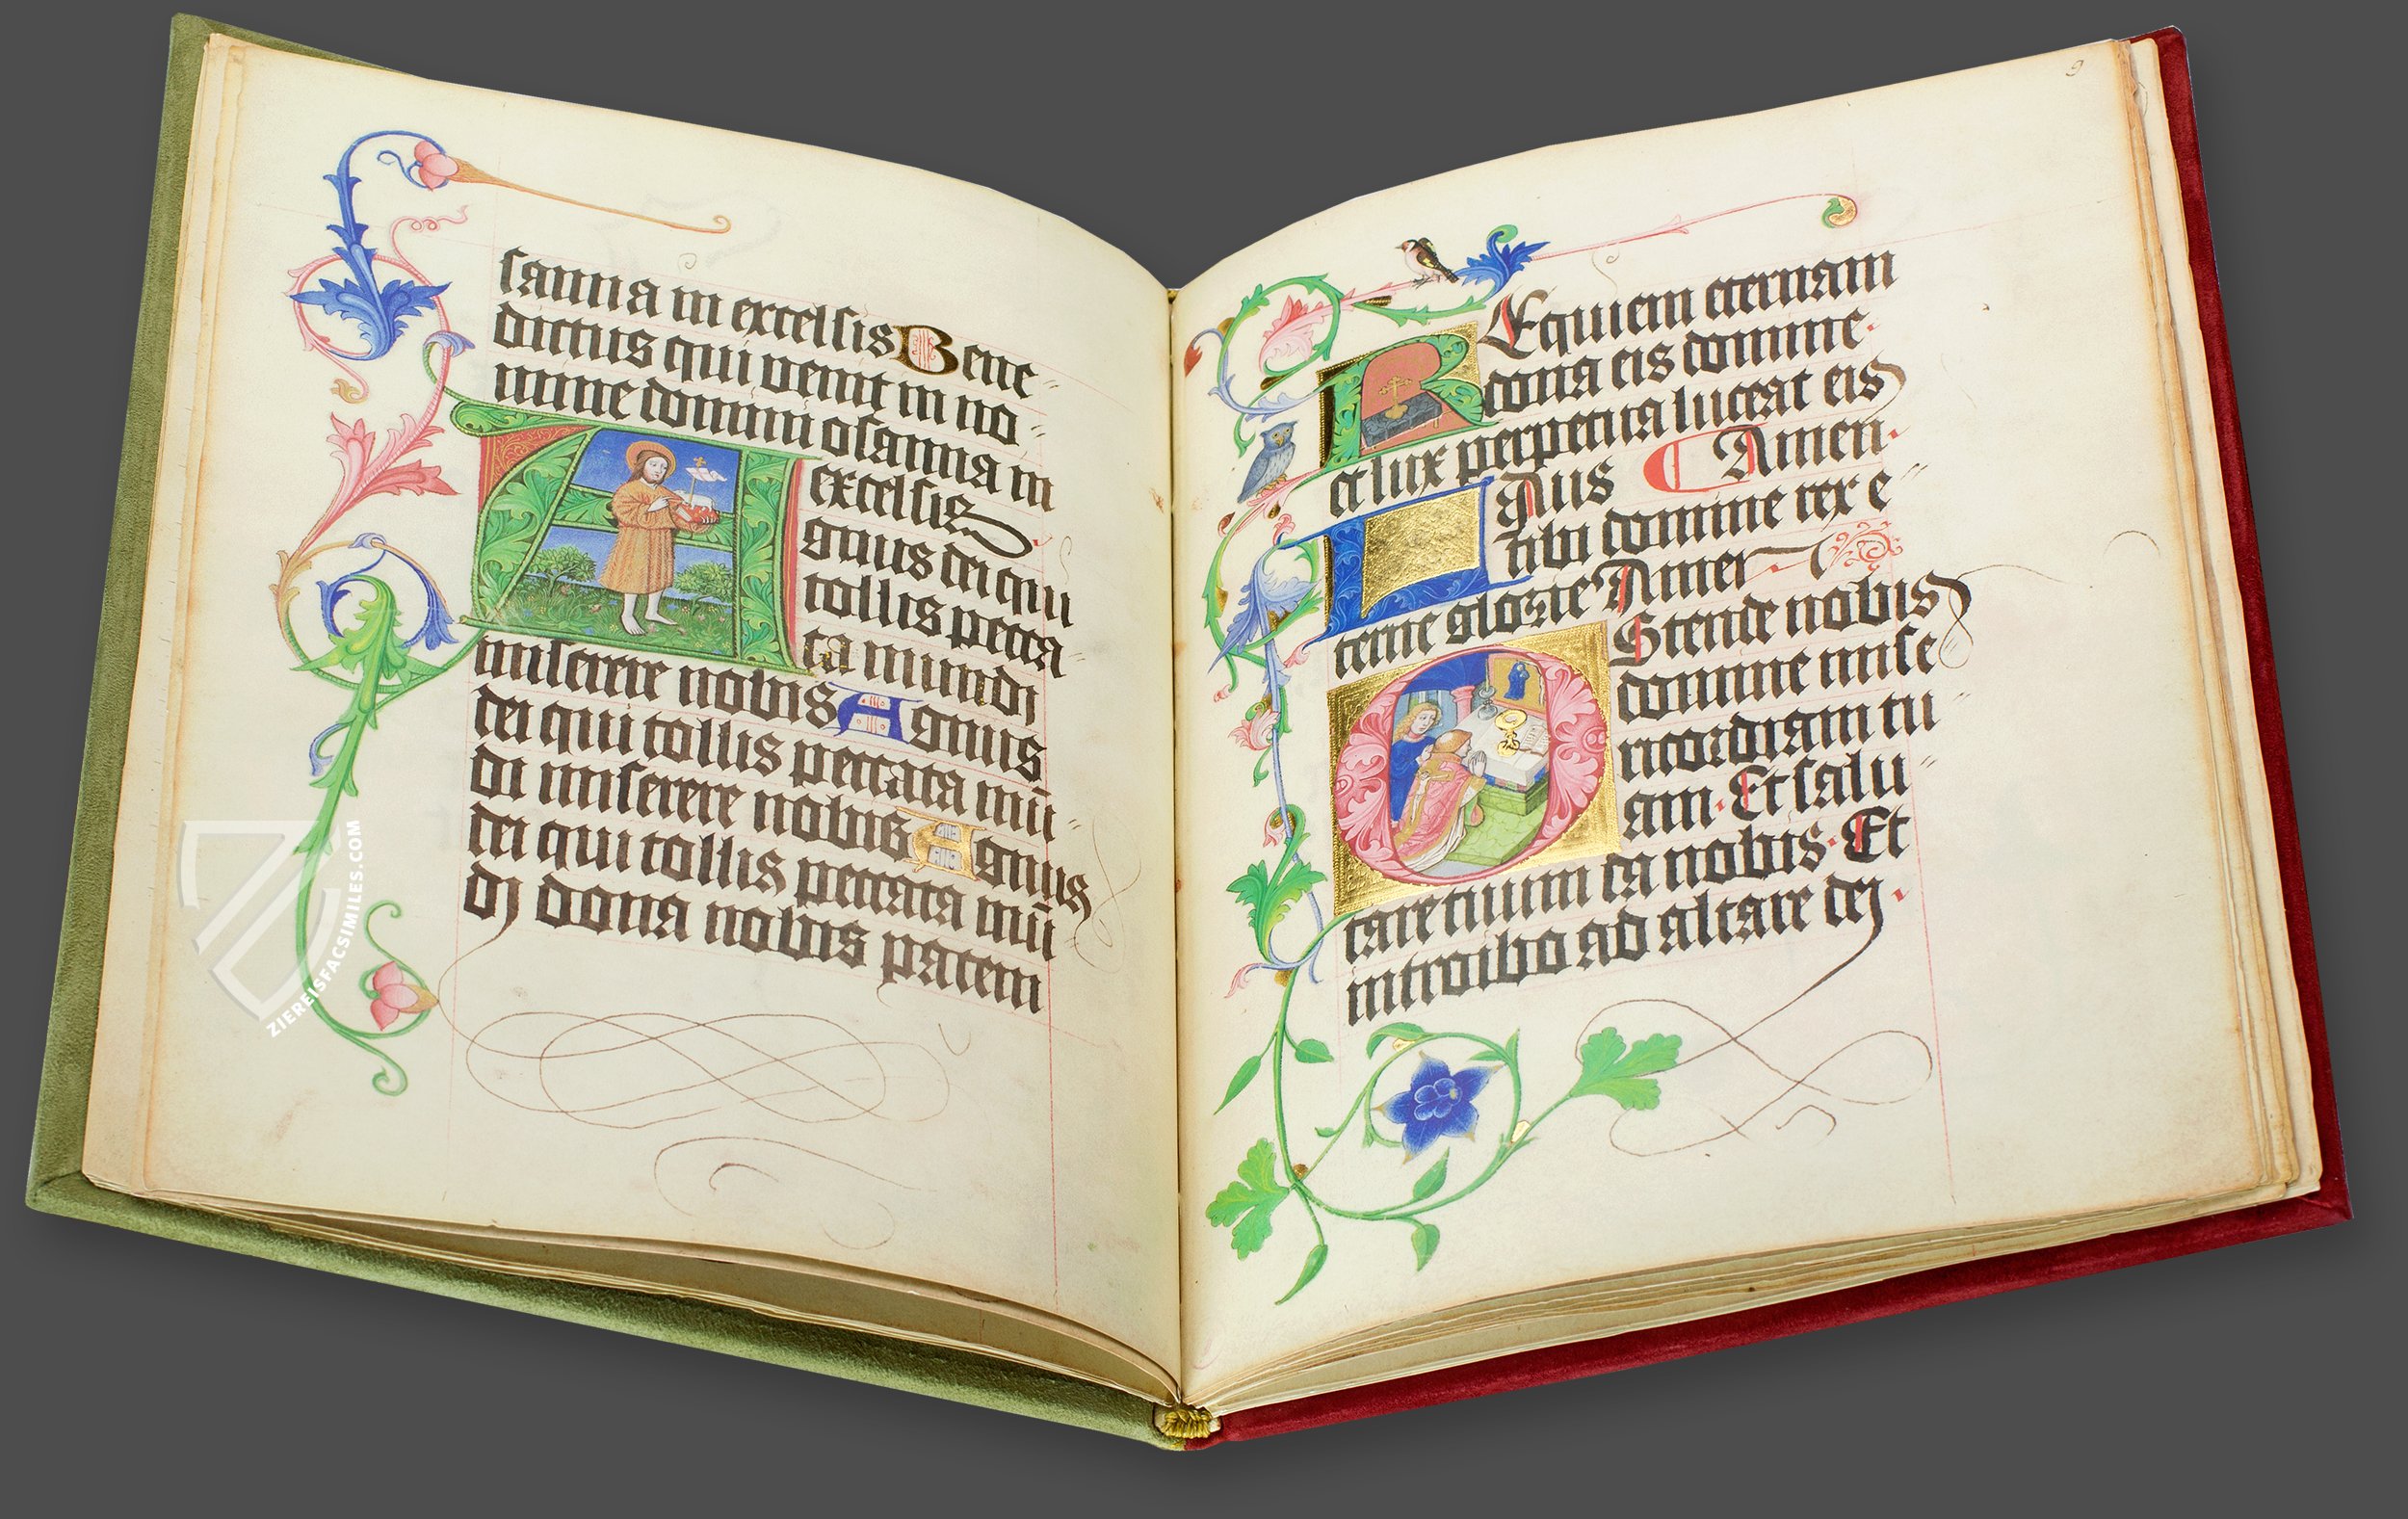 sanna in excelsis Bene
dictus qui venit in no
mine domini osanna in
excelsis
Agnus dei qui
tollis pecca
ta mundi
miserere nobis Agnus
dei qui tollis peccata mū
di miserere nobis Agnus
dei qui tollis peccata mū
dj dona nobis pacem
9
REquiem eternam
dona eis domine.
et lux perpetua luceat eis
Amen.
LAus
tibi domine rex e
terne glorie Amen
OStende nobis
domine mise
ricordiam tu
am. Et salu
tare tuum da nobis. Et
introibo ad altare dej.
ZIEREISFACSIMILES.COM